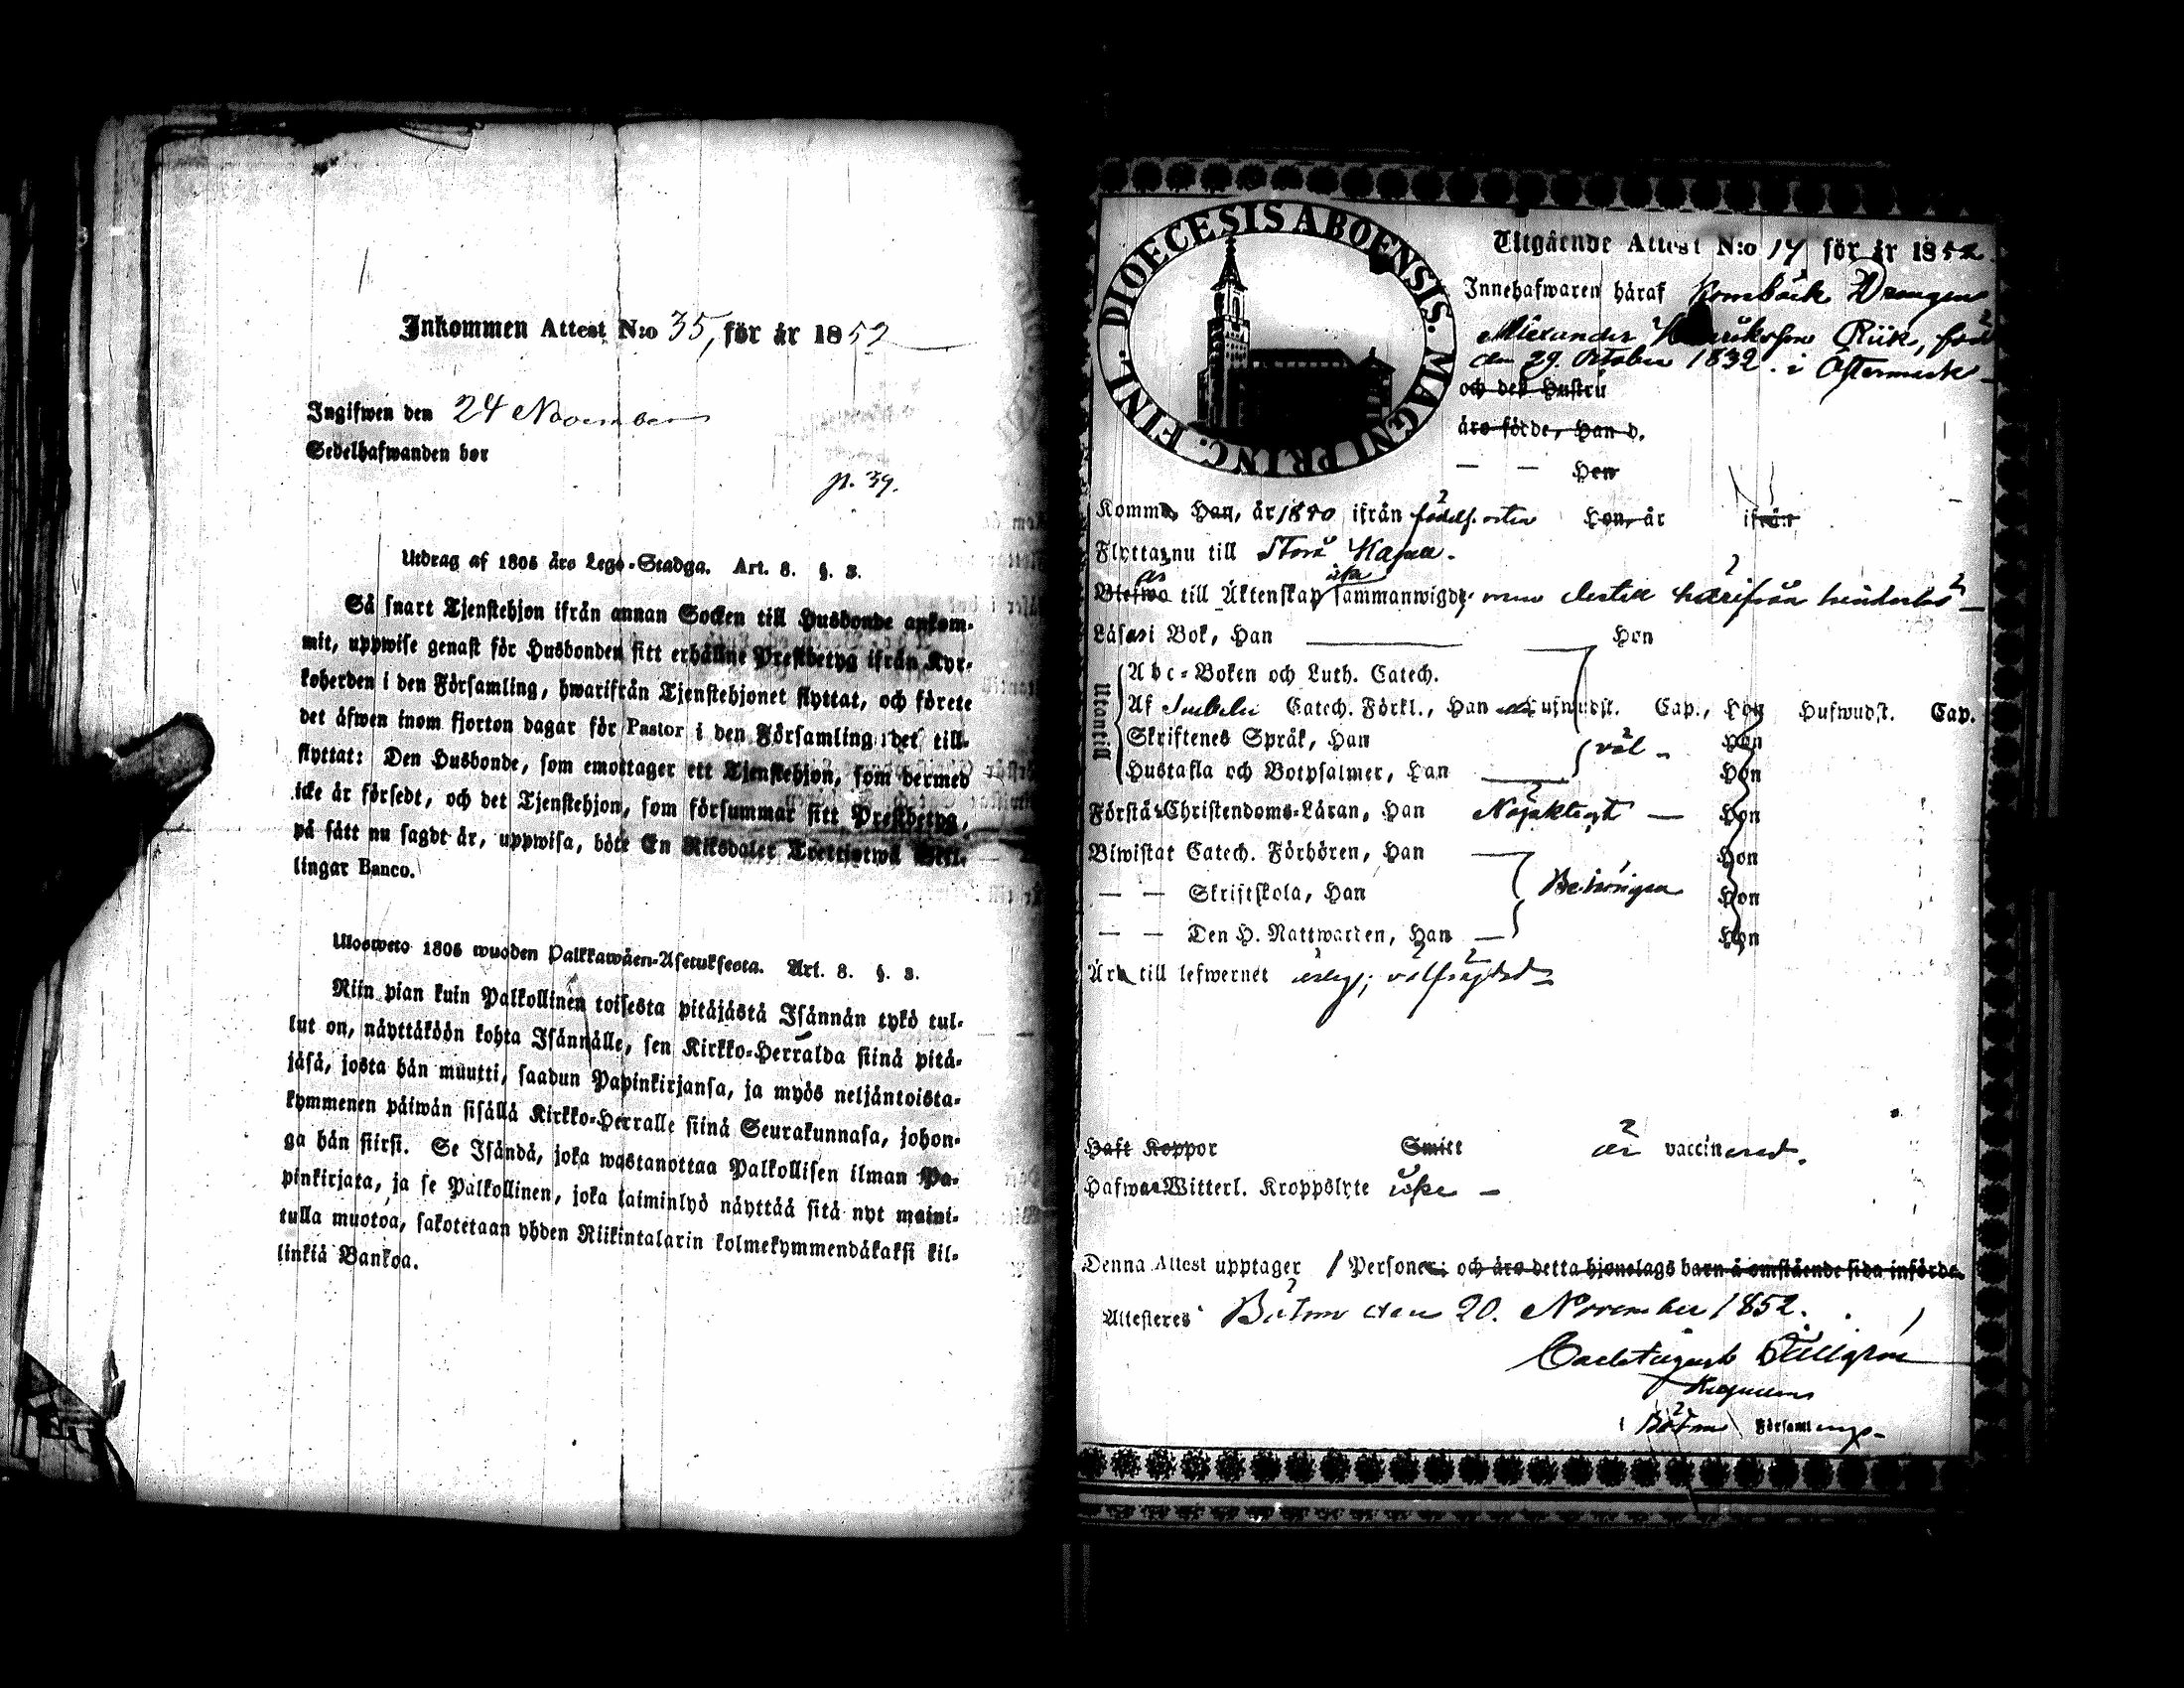 Inkommen Attest N:o 35, för år 1852
Ingifwen den 24 November
Sedelhafwanden bör
p. 39.
Utdrag af 1805 års Lego-Stadga. Art. 8. §. 3.
Så snart Tjenstehjon ifrån annan Socken till Husbonde ankom-
mit, uppwise genast för Husbonden sitt erhållne Prestbetyg ifrån Kyr-
koherden i den Församling, hwarifrån Tjenstehjonet flyttat, och förete
det äfwen inom fjorton dagar för Pastor i den Församling det till-
flyttat: Den Husbonde, som emottager ett Tjenstehjon, som dermed
icke är försedt, och det Tjenstehjon, som försummar sitt Prestbetyg,
på sätt nu sagdt är, uppwisa, böte En Riksdaler Trettiotwå Skil-
lingar Banco.
Ulosweto 1805 wuoden Palkkawäen-Asetuksesta. Art. 8. §. 3.
Niin pian kuin Palkollinen toisesta pitäjästä Isännän tykö tul-
lut on, näyttäköön kohta Isännälle, sen Kirkko-Herralda siinä pitä-
jäsä, josta hän muutti, saadun Papinkirjansa, ja myös neljäntoista-
kymmenen päiwän sisällä Kirkko-Herralle siinä Seurakunnasa, johon-
ga hän siirsi. Se Isändä, joka wastanottaa Palkollisen ilman Pa-
pinkirjata, ja se Palkollinen, joka laiminlyö näyttää sitä nyt maini-
tulla muotoa, sakotetaan yhden Riikintalarin kolmekymmendäkaksi kil-
linkiä Bankoa.
DIOECESIS ABOENSIS. MAGNI PRINC. FINL.
Utgående Attest N:o 17 för år 1852
Innehafwaren häraf Drängen
Alexander Henriksson Riik, född
den 29 October 1832. i Östermark
och deß Hustru
äro födde, Han d.
— — Hon
Komm Han, år 1840 ifrån födels. orten Hon, år ifrån
Flyttar nu till Storå
Blefwo till Äktenskap icke sammanwigde, men härifrån hinderlös
Läsa i Bok, Han Hon
Utantill
Abc-Boken och Luth. Catech.
Af Catech. Förkl., Han Hufwudst. Cap., Hon Hufwudst. Cap.
Skriftenes Språk, Han väl Hon
Hustafla och Botpsalmer, Han Hon
Förstå Christendoms-Läran, Han Nöjaktigt — Hon
Biwistat Catech. Förhören, Han Hon
— — Skriftskola, Han Behörigen Hon
— — Den H. Nattwarden, Han Hon
Är till lefwernet ärlig, välfrägdad
Haft Koppor Smitt är vaccinerad.
Hafwa Witterl. Kroppslyte icke —
Denna Attest upptager 1 Personer; och äro detta hjonelags barn å omstående sida införde.
Attesteres Bötom den 20. November 1852.
Carl August
i Bötom Församling